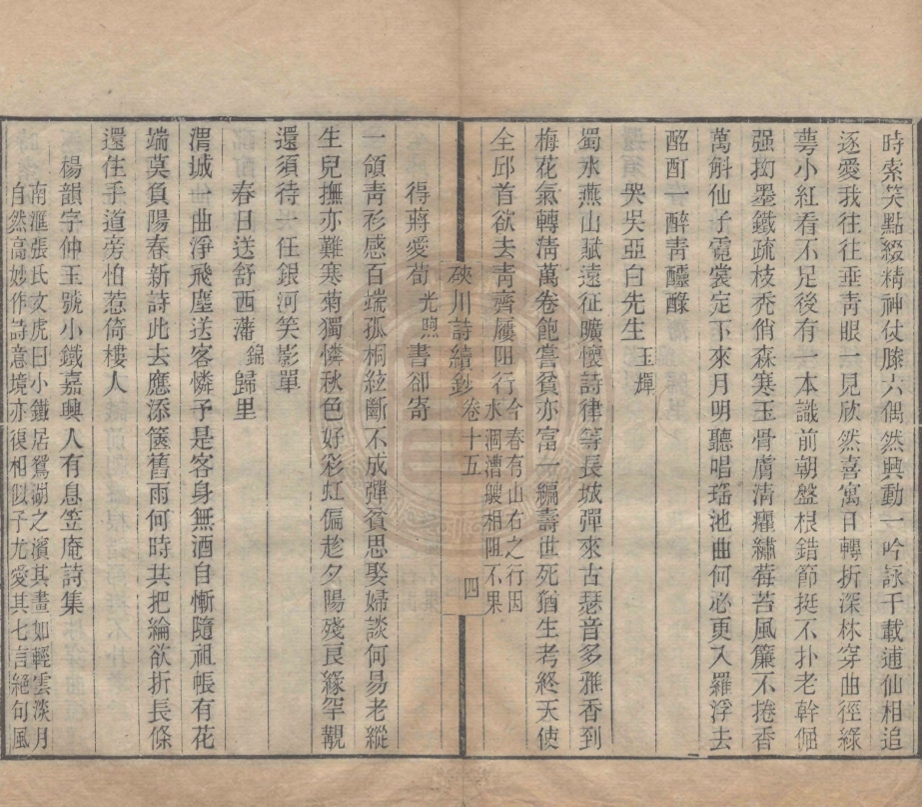 時索笑點綴精神仗滕六偶然興動一吟詠千載逋仙相追
逐愛我往往垂青眼一見欣然喜寓目轉折深林穿曲徑綠
萼小紅看不足後有一本識前朝盤根錯節挺不扑老幹倔
强拗墨鐵疏枝秃俏森寒玉骨膚清癯繡莓苔風簾不捲香
萬斛仙子霓裳定下來月明聽唱瑶池曲何必更入羅浮去
酩酊一醉青醽醁
哭吳亞白先生玉墀
蜀水燕山賦遠征曠懷詩律等長城彈來古瑟音多雅香到
梅花氣轉清萬卷飽嘗貧亦富一編壽世死猶生考終天使
全邱首欲去青齊屢阻行今春有山右之行因
水涸漕艘相阻不果
硤川詩續鈔 卷十五 四
得蔣愛荀光煦書卻寄
一領青衫感百端孤桐絃斷不成彈貧思娶婦談何易老縱
生兒撫亦難寒菊獨憐秋色好彩虹偏趁夕陽殘良緣罕覯
還須待一任銀河笑影單
春日送舒西藩錦歸里
渭城一曲淨飛塵送客憐予是客身無酒自慚隨祖帳有花
端莫負陽春新詩此去應添篋舊雨何時共把綸欲折長條
還住手道旁怕惹倚樓人
楊韻字仲玉號小鐵嘉興人有息笠庵詩集
南滙張氏文虎曰小鐵居鴛湖之濱其畫如輕雲淡月
自然高妙作詩意境亦復相似予尤愛其七言絕句風